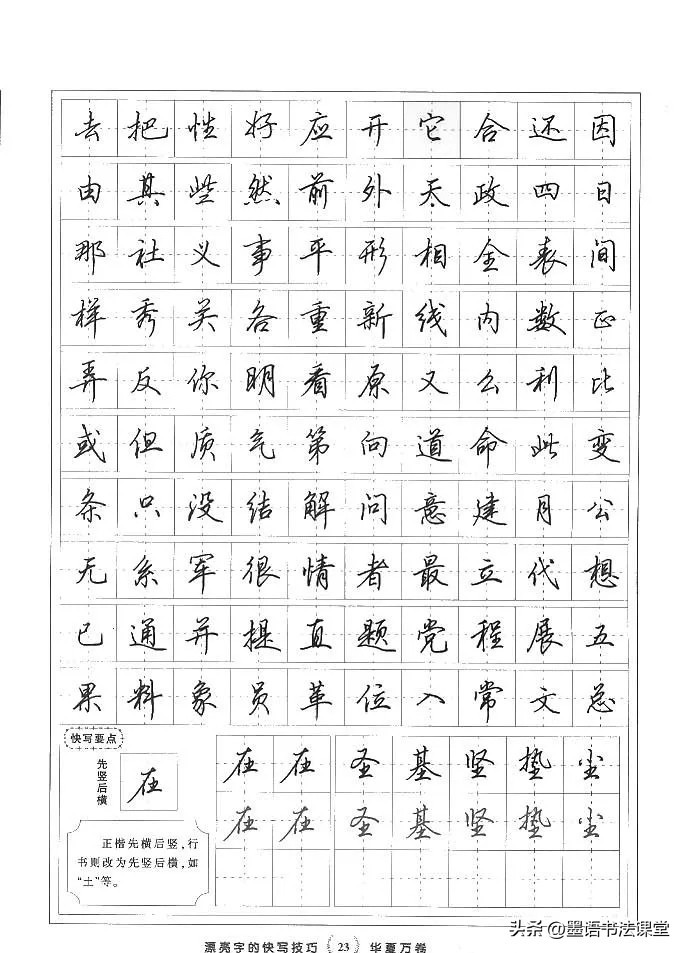 去把性好应开它合还因
由其些然前外天政四日
那社义事平形相全表间
样秀关各重新线内数正
弄反你明看原又么利比
或但质气第向道命此变
条只没结解问意建月公
无系军很情者最立代想
已通并提直题党程展五
果料象员革位入常文总
快写要点
先竖后横
在
在在圣基坚垫尘
在在圣基坚垫尘
正楷先横后竖，行
书则改为先竖后横，如
“土”等。
漂亮字的快写技巧 23 华夏万卷
头条@墨语书法课堂